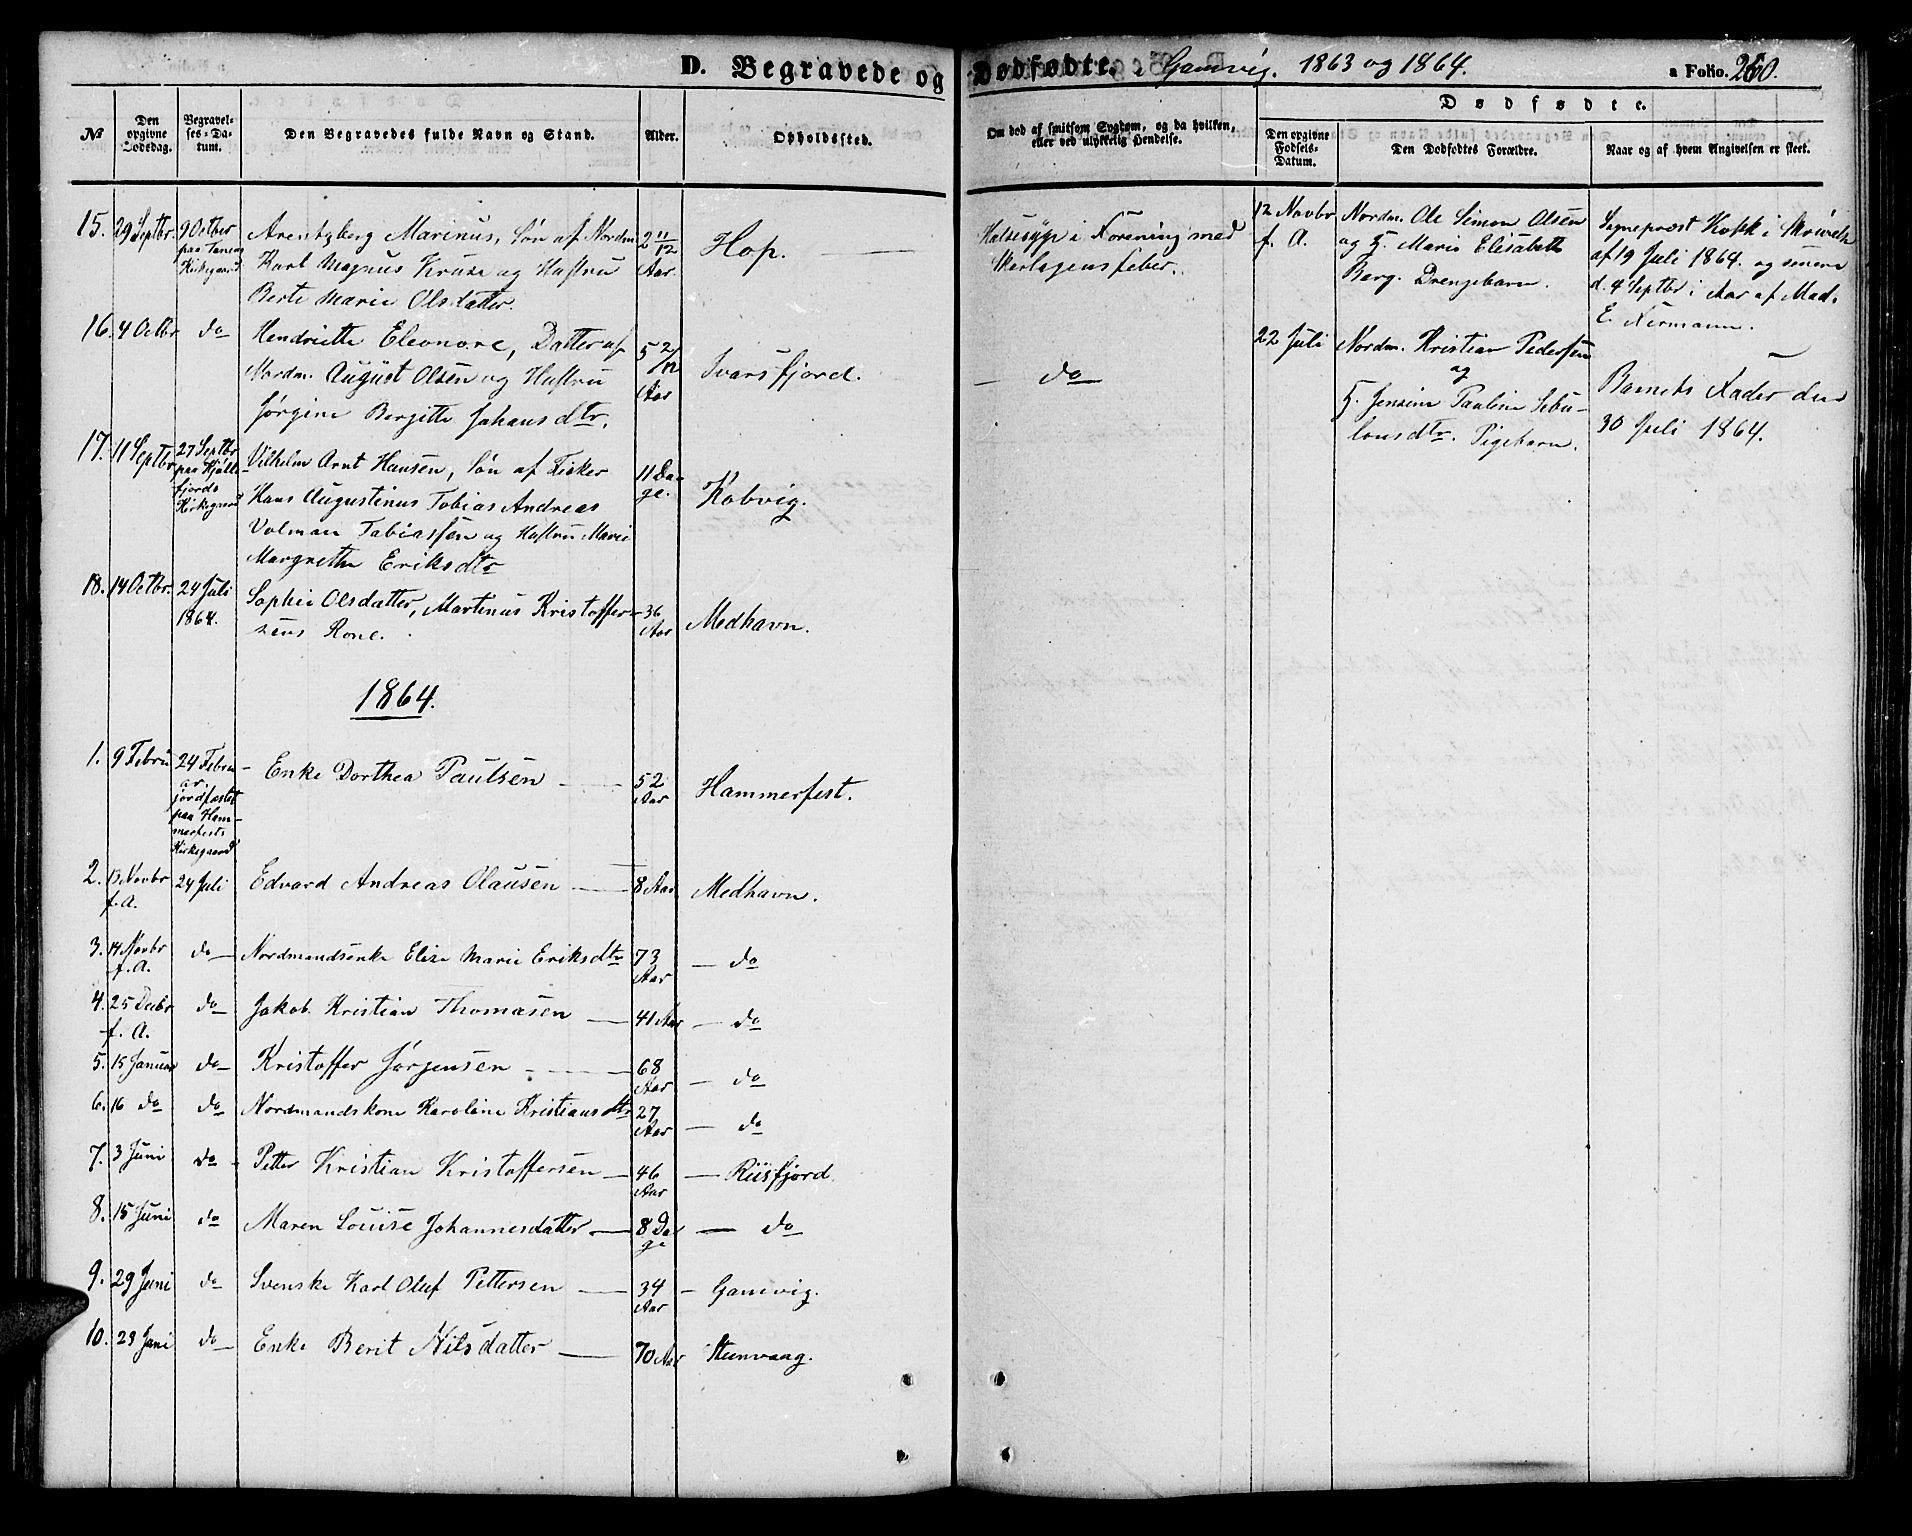 D. Begravede og Dødfødte. i Gamvig. 1863 og 1864. a Folio. 260.
No
Den opgivne Dødsdag.
Begravelses-Datum.
Den Begravedes fulde Navn og Stand.
Alder.
Opholdssted.
Om død af smitsom Sygdom, og da hvilken, eller ved ulykkelig Hendelse.
Dødfødte.
Den opgivne Fødsels-Datum.
Den Dødfødtes Forældre.
Naar og af hvem Angivelsen er skeet.
15. 29 Septbr. 9 Octber paa Tanens Kirkegaard
Arentzberg Marinus, Søn af Nordm.
Karl Magnus Kruse og Hustru
Berte Marie Olsdatter.
2 11/12 Aar
Hop.
Halsesyge i Forening med
Skarlagensfeber.
16. 4 Octbr do
Hendriette Eleonore, Datter af
Nordm. August Olsen og Hustru
Jørgine Bergitte Johansdtr.
5 2/12 Aar
Ivarsfjord.
— do
17. 11 Septbr. 27 Septbr. paa Kjøllefjords Kirkegaard
Vilhelm Arnt Hansen, Søn af Fisker
Hans Augustinus Tobias Andreas
Volman Tobiassen og Hustru Marie
Margrethe Eriksdtr
11 Dage.
Kobvig.
18. 14 Octbr. 24 Juli 1864.
Sophie Olsdatter, Martinus Kristoffersens Kone.
36 Aar
Medhavn.
12 Novbr f. A.
Nordm. Ole Simon Olsen
og H. Marie Elisabeth
Barg. Drengebarn.
Sognepræst Kokk i Skrivelse
af 19 Juli 1864. og senere
d. 4 Septbr i Aar af Mad.
E. Nermann.
22 Juli
Nordm. Kristian Pedersen
og
H. Jensine Pauline Sebulonsdtr. Pigebarn.
Barnets Fader den
30 Juli 1864.
1864.
1. 9 Febru 24 Februar. jordfæstet paa Hammerfests Kirkegaard
Enke Dorthea Paulsen — 52 Aar Hammerfest.
2. 13 Novbr f. A. 24 Juli Edvard Andreas Olausen — 8 Aar Medhavn.
3. 14 Novbr f. A. do — Nordmandsenke Elise Marie Eriksdtr 73 Aar — do
4. 25 Decbr f. A. do — Jakob Kristian Thomasen — 41 Aar — do
5. 15 Januar do — Kristoffer Jørgensen — 68 Aar — do
6. 16 do do Nordmandskone Karoline Kristiansdtr 27 Aar — do
7. 3 Juni do — Petter Kristian Kristoffersen — 46 Aar — Riisfjord
8. 15 Juni do Maren Louise Johannesdatter — 8 Dage — do
9. 29 Juni do Svenske Karl Oluf Pettersen — 34 Aar — Gamvig.
10. 23 Juni do — Enke Berit Nilsdatter — 70 Aar Steenvaag.